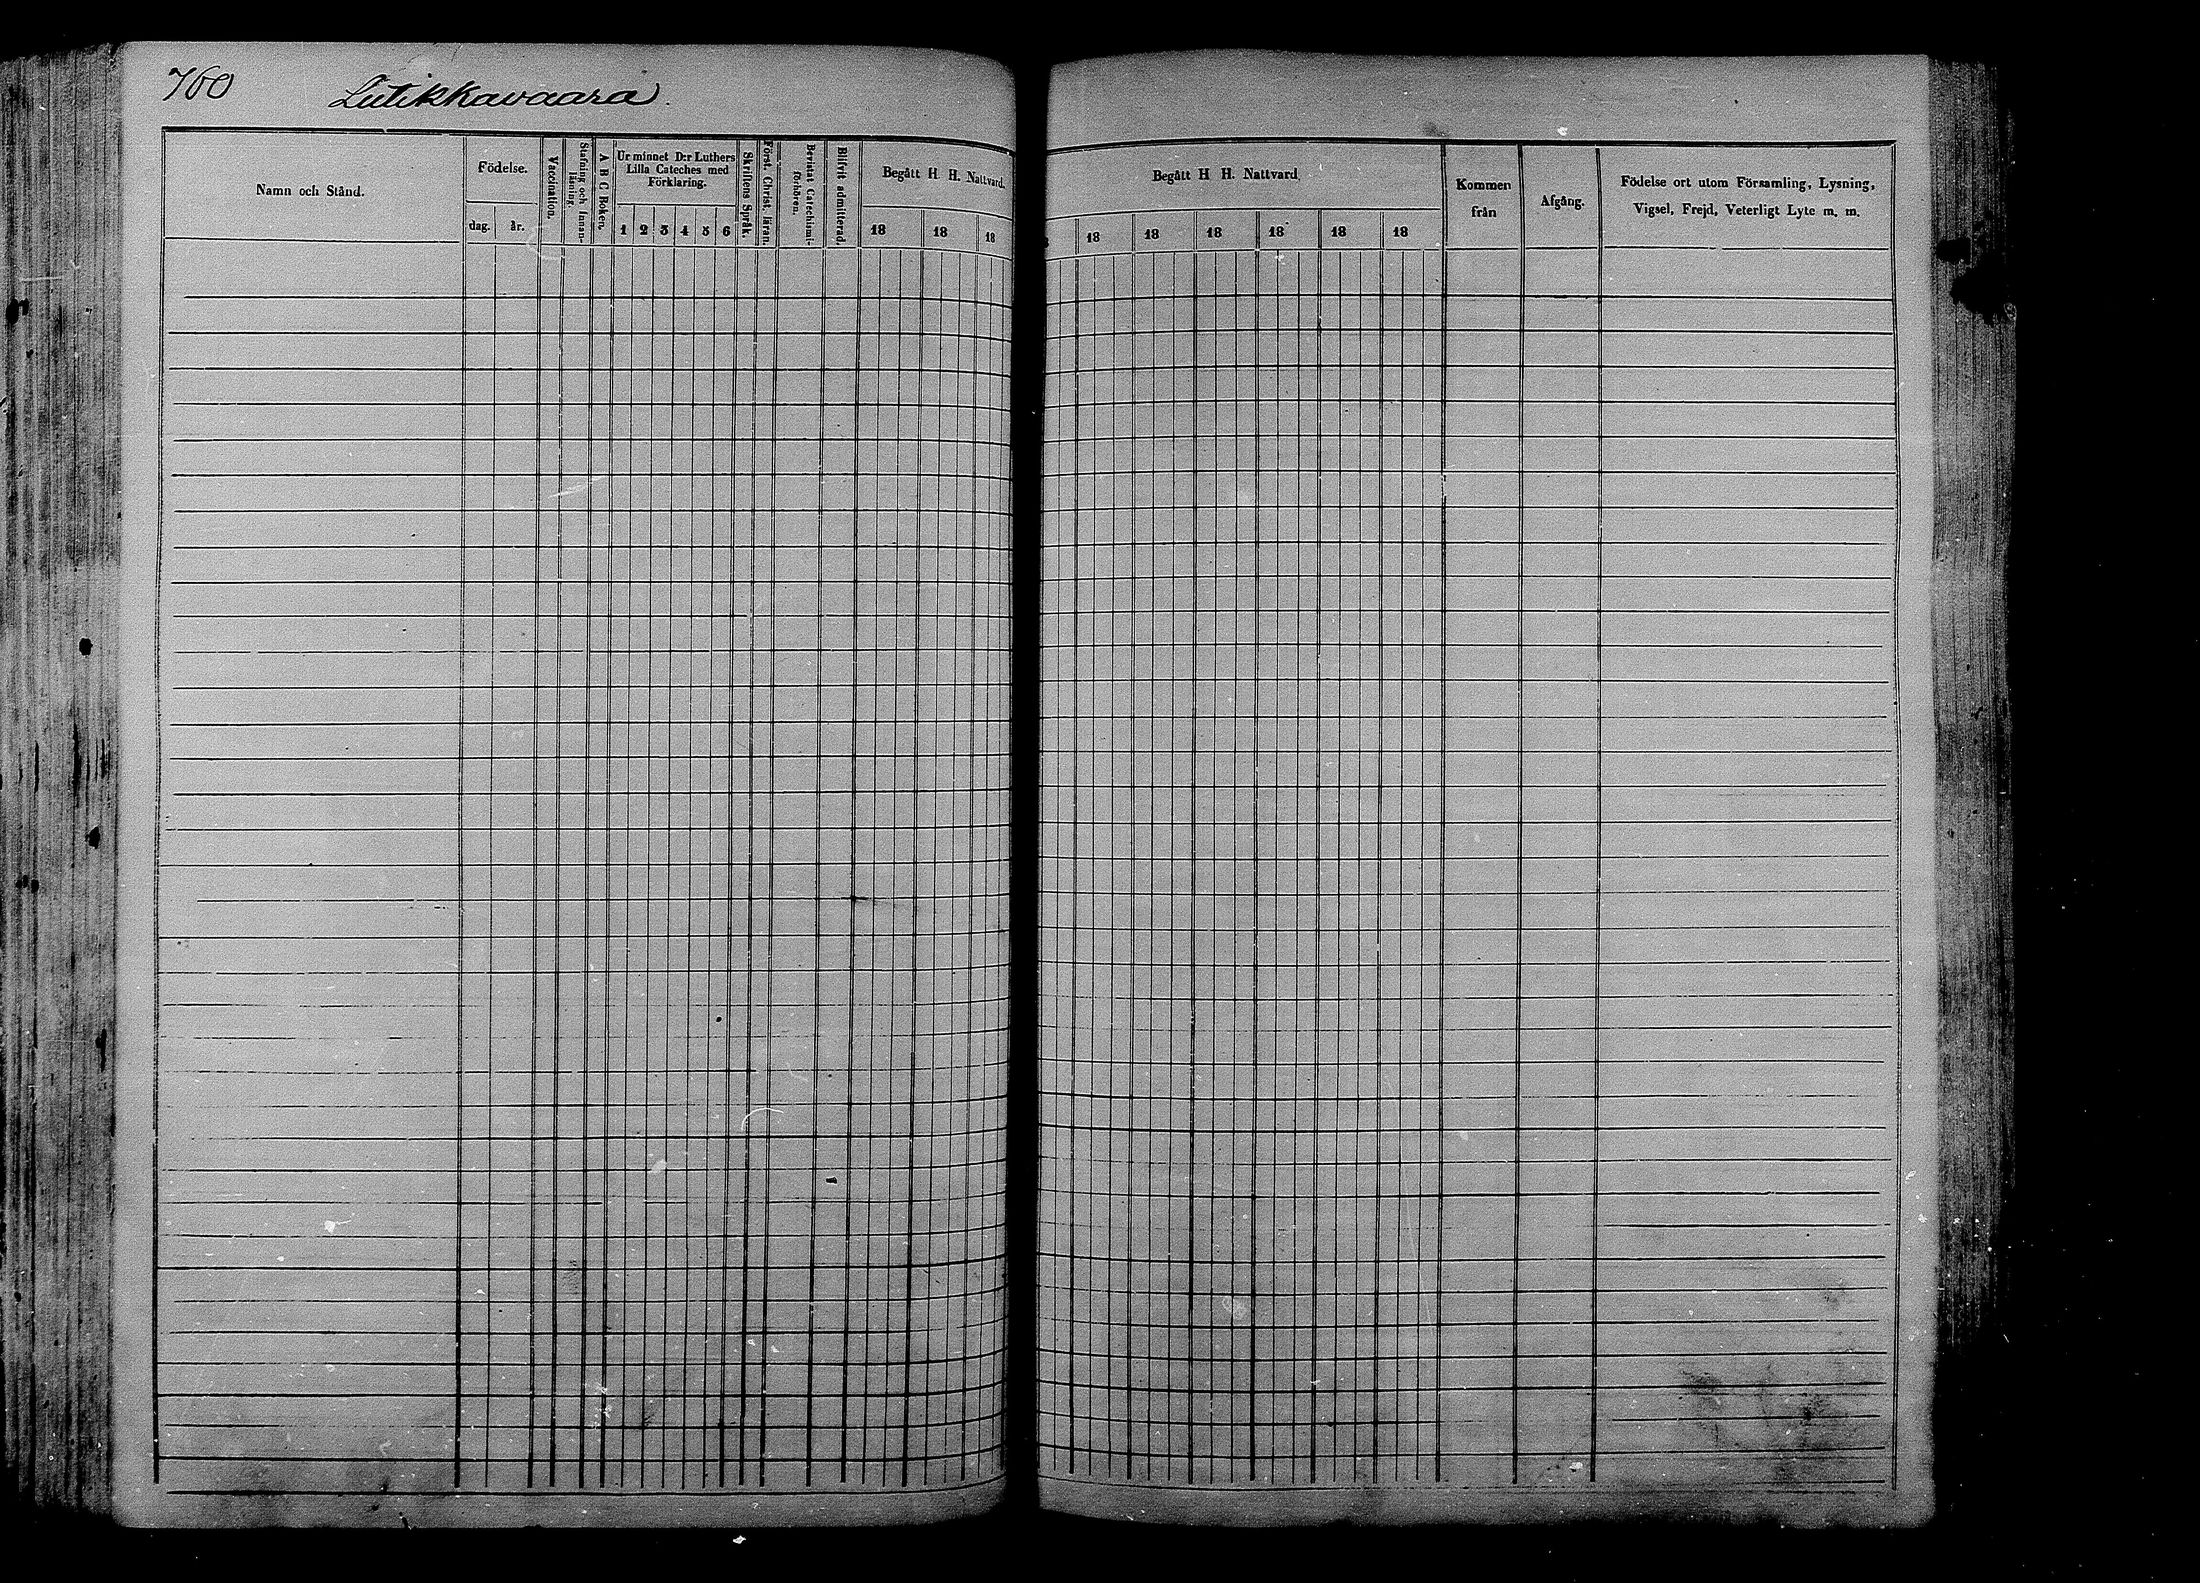 760
Lutikkavaara.
Namn och Stånd.
Födelse.
dag.
år.
Vaccination.
Stafning och Innan-
läsning.
A B C Boken.
Ur minnet D:r Luthers
Lilla Cateches med
Förklaring.
1 2 3 4 5 6
Skriftens Språk.
Först. Christ. läran.
Bevistat Catechismi-
förhören.
Blifvit admitterad.
Begått H. H. Nattvard.
18 18 18
Begått H H. Nattvard.
18 18 18 18 18 18
Kommen
från
Afgång.
Födelse ort utom Församling, Lysning,
Vigsel, Frejd, Veterligt Lyte m. m.